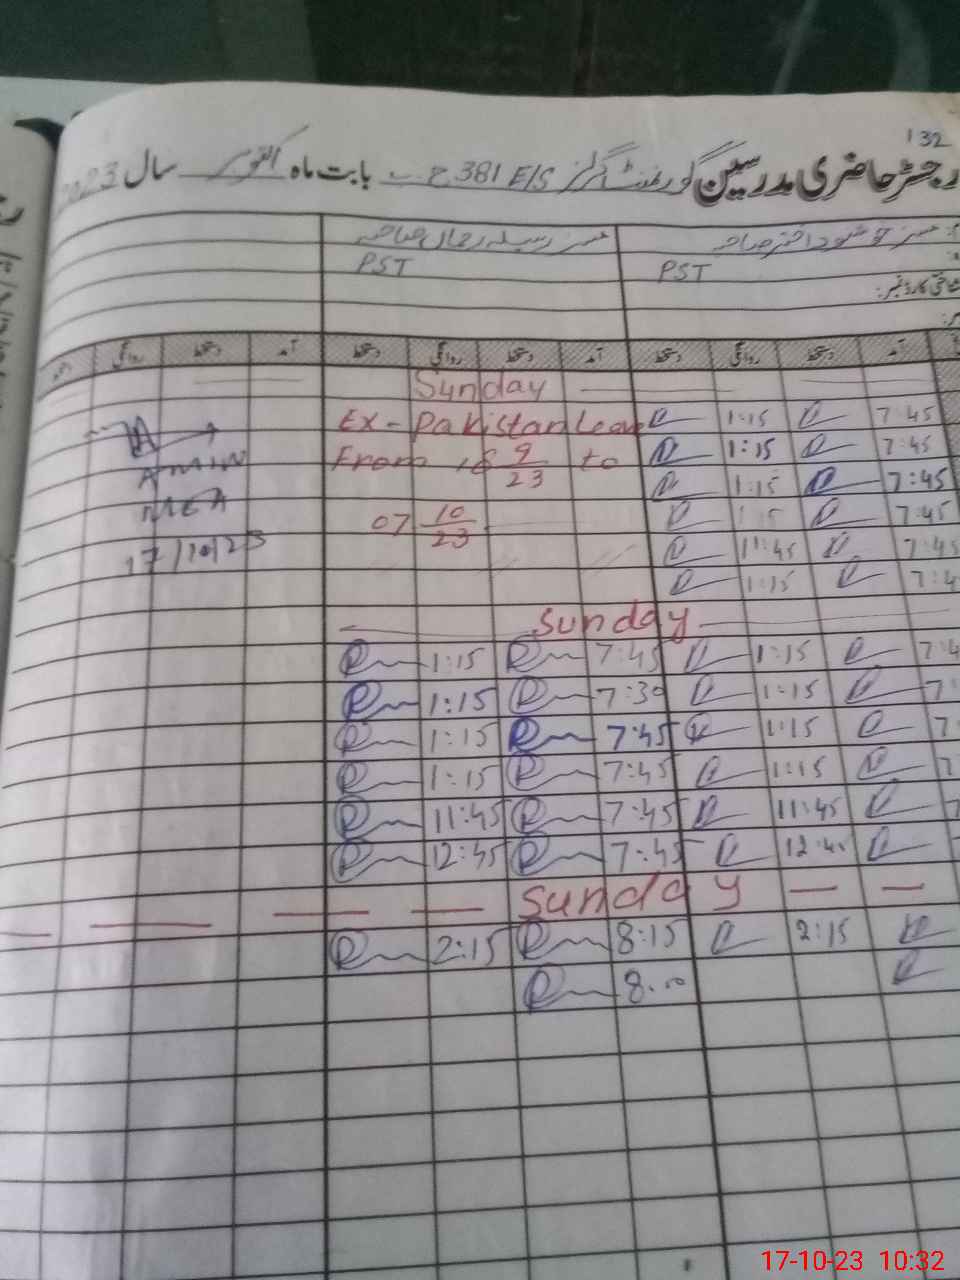 132
رجسٹر حاضری مدرسین گورنمنٹ گرلز E/S 381 ج ب بابت ماہ اکتوبر سال 2023
PST PST
شناختی کارڈ نمبر:
آمد دستخط روانگی دستخط آمد دستخط روانگی دستخط آمد دستخط روانگی
Sunday
Ex-Pakistan Leave 1:15 7:45
From 16 9/23 to 1:15 7:45
1:15 7:45
07 10/23 1:15 7:45
11:45 7:45
1:15 7:4
AMIN
MEA
17/10/23
Sunday
1:15 7:45 1:15 7:4
1:15 7:30 1:15 7:
1:15 7:45 1:15 7
1:15 7:45 1:15 7
11:45 7:45 11:45 7
12:45 7:45 12:45
Sunday
2:15 8:15 2:15
8.00
17-10-23 10:32